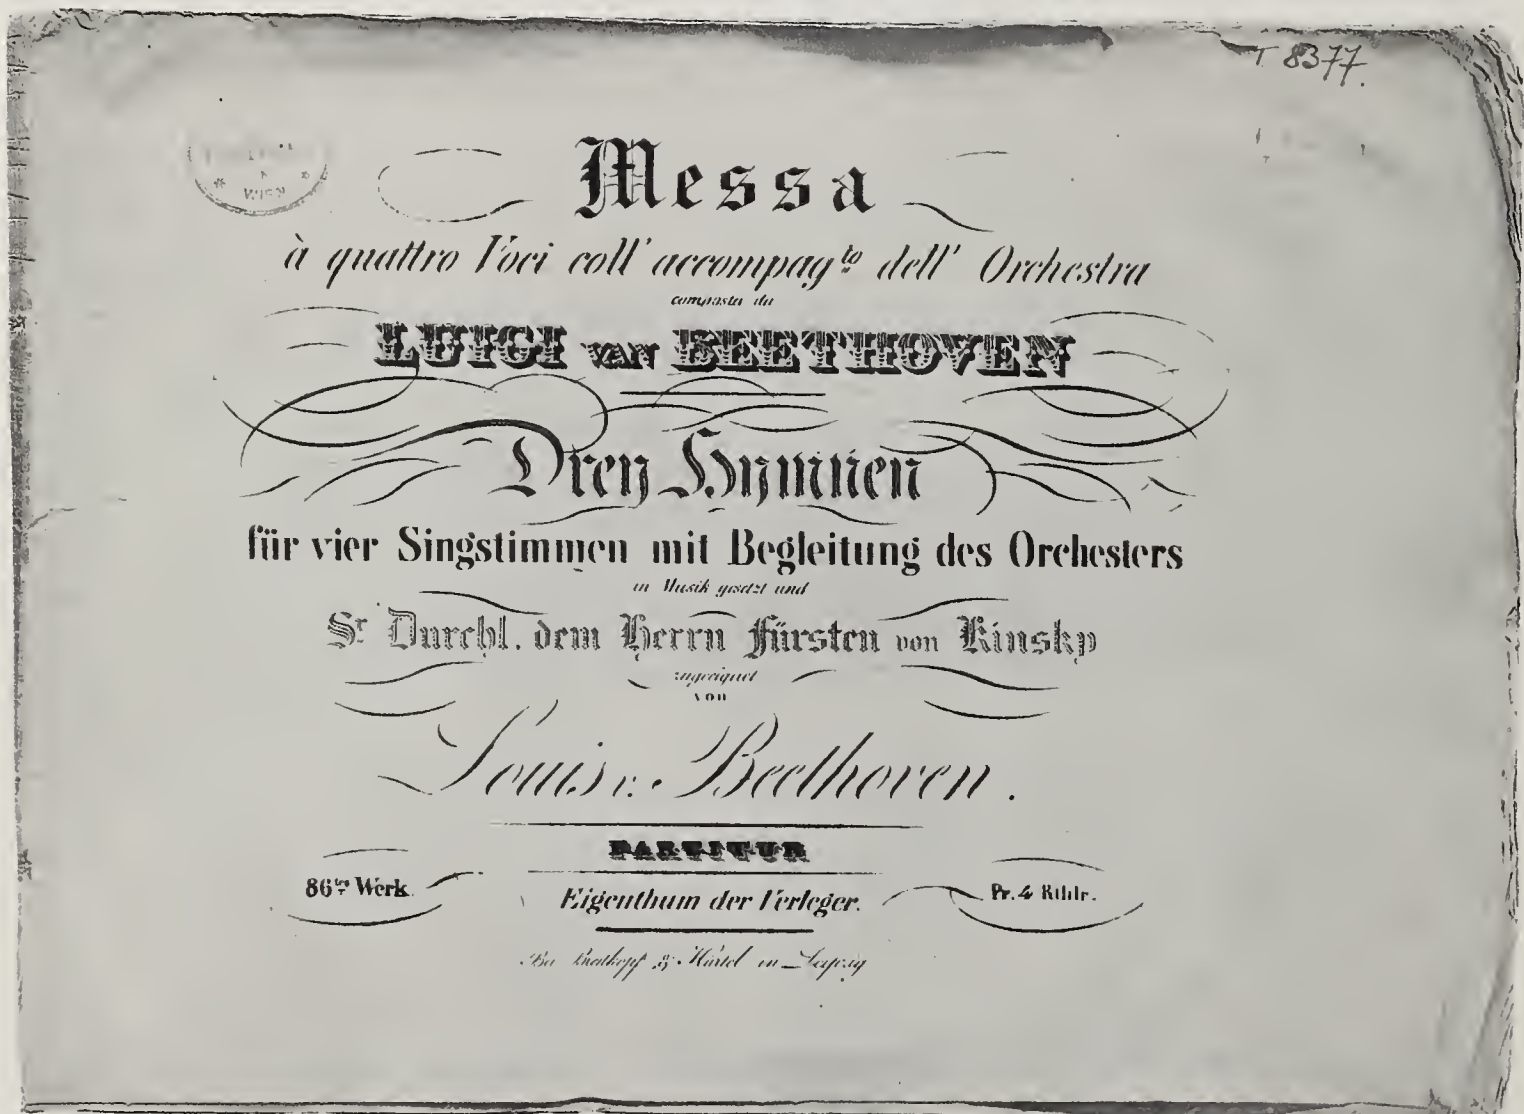 T 8377.
WIEN
Messa
à quattro Voci coll' accompag.to dell' Orchestra
composta da
LUIGI VAN BEETHOVEN
Drey Hymnen
für vier Singstimmen mit Begleitung des Orchesters
in Musik gesetzt und
Sr. Durchl. dem Herrn Fürsten von Kinsky
zugeeignet
von
Louis v. Beethoven.
PARTITUR
86tes Werk.
Eigenthum der Verleger.
Pr. 4 Rthlr.
Bei Breitkopf & Härtel in Leipzig